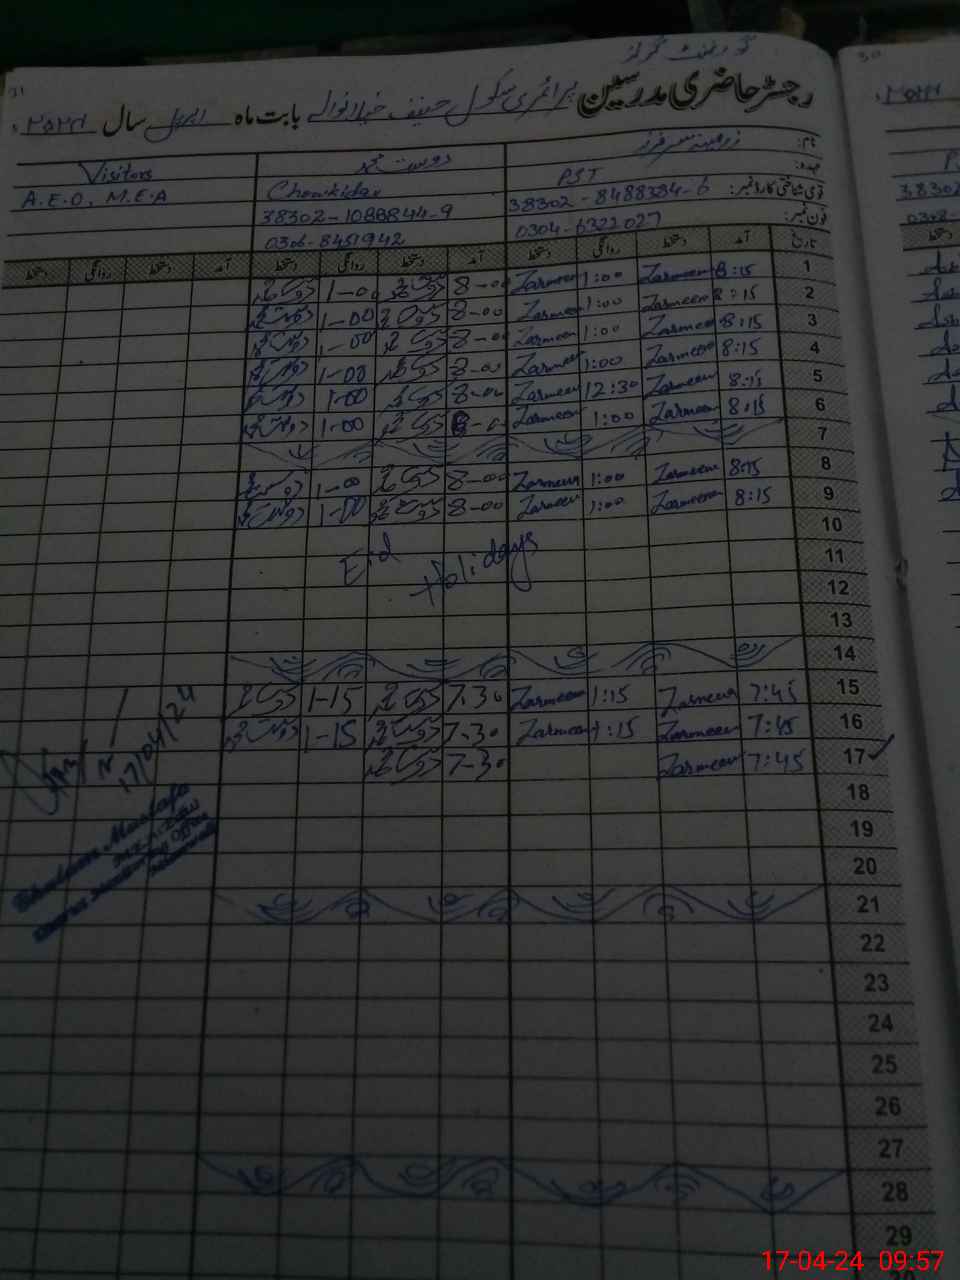 31
گورنمنٹ گرلز
رجسٹر حاضری مدرسین پرائمری سکول حنیف خیارانوالے بابت ماہ اپریل سال ۲۰۲۴ء
نام: زرمینہ سرفراز دوست محمد Visitors
عہدہ: PST Chowkidar A.E.O, M.E.A
قومی شناختی کارڈ نمبر: 38302-8488384-6 38302-1088844-9
فون نمبر: 0304-6322027 0306-8451942
تاریخ آمد دستخط روانگی دستخط آمد دستخط روانگی دستخط آمد دستخط روانگی دستخط
1 8:15 Zarmeen 1:00 Zarmeen 8-00 دوست محمد 1-00 دوست محمد
2 8:15 Zarmeen 1:00 Zarmeen 8-00 دوست محمد 1-00 دوست محمد
3 8:15 Zarmeen 1:00 Zarmeen 8-00 دوست محمد 1-00 دوست محمد
4 8:15 Zarmeen 1:00 Zarmeen 8-00 دوست محمد 1-00 دوست محمد
5 8:15 Zarmeen 12:30 Zarmeen 8-00 دوست محمد 1-00 دوست محمد
6 8:15 Zarmeen 1:00 Zarmeen 8-00 دوست محمد 1-00 دوست محمد
7
8 8:15 Zarmeen 1:00 Zarmeen 8-00 دوست محمد 1-00 دوست محمد
9 8:15 Zarmeen 1:00 Zarmeen 8-00 دوست محمد 1-00 دوست محمد
10
11 Eid Holidays
12
13
14
15 7:45 Zarmeen 1:15 Zarmeen 7-30 دوست محمد 1-15 دوست محمد
16 7:45 Zarmeen 1:15 Zarmeen 7-30 دوست محمد 1-15 دوست محمد
17 7:45 Zarmeen 7-30 دوست محمد
17/04/24
Mustafa
18
19
20
21
22
23
24
25
26
27
28
29
30
17-04-24 09:57